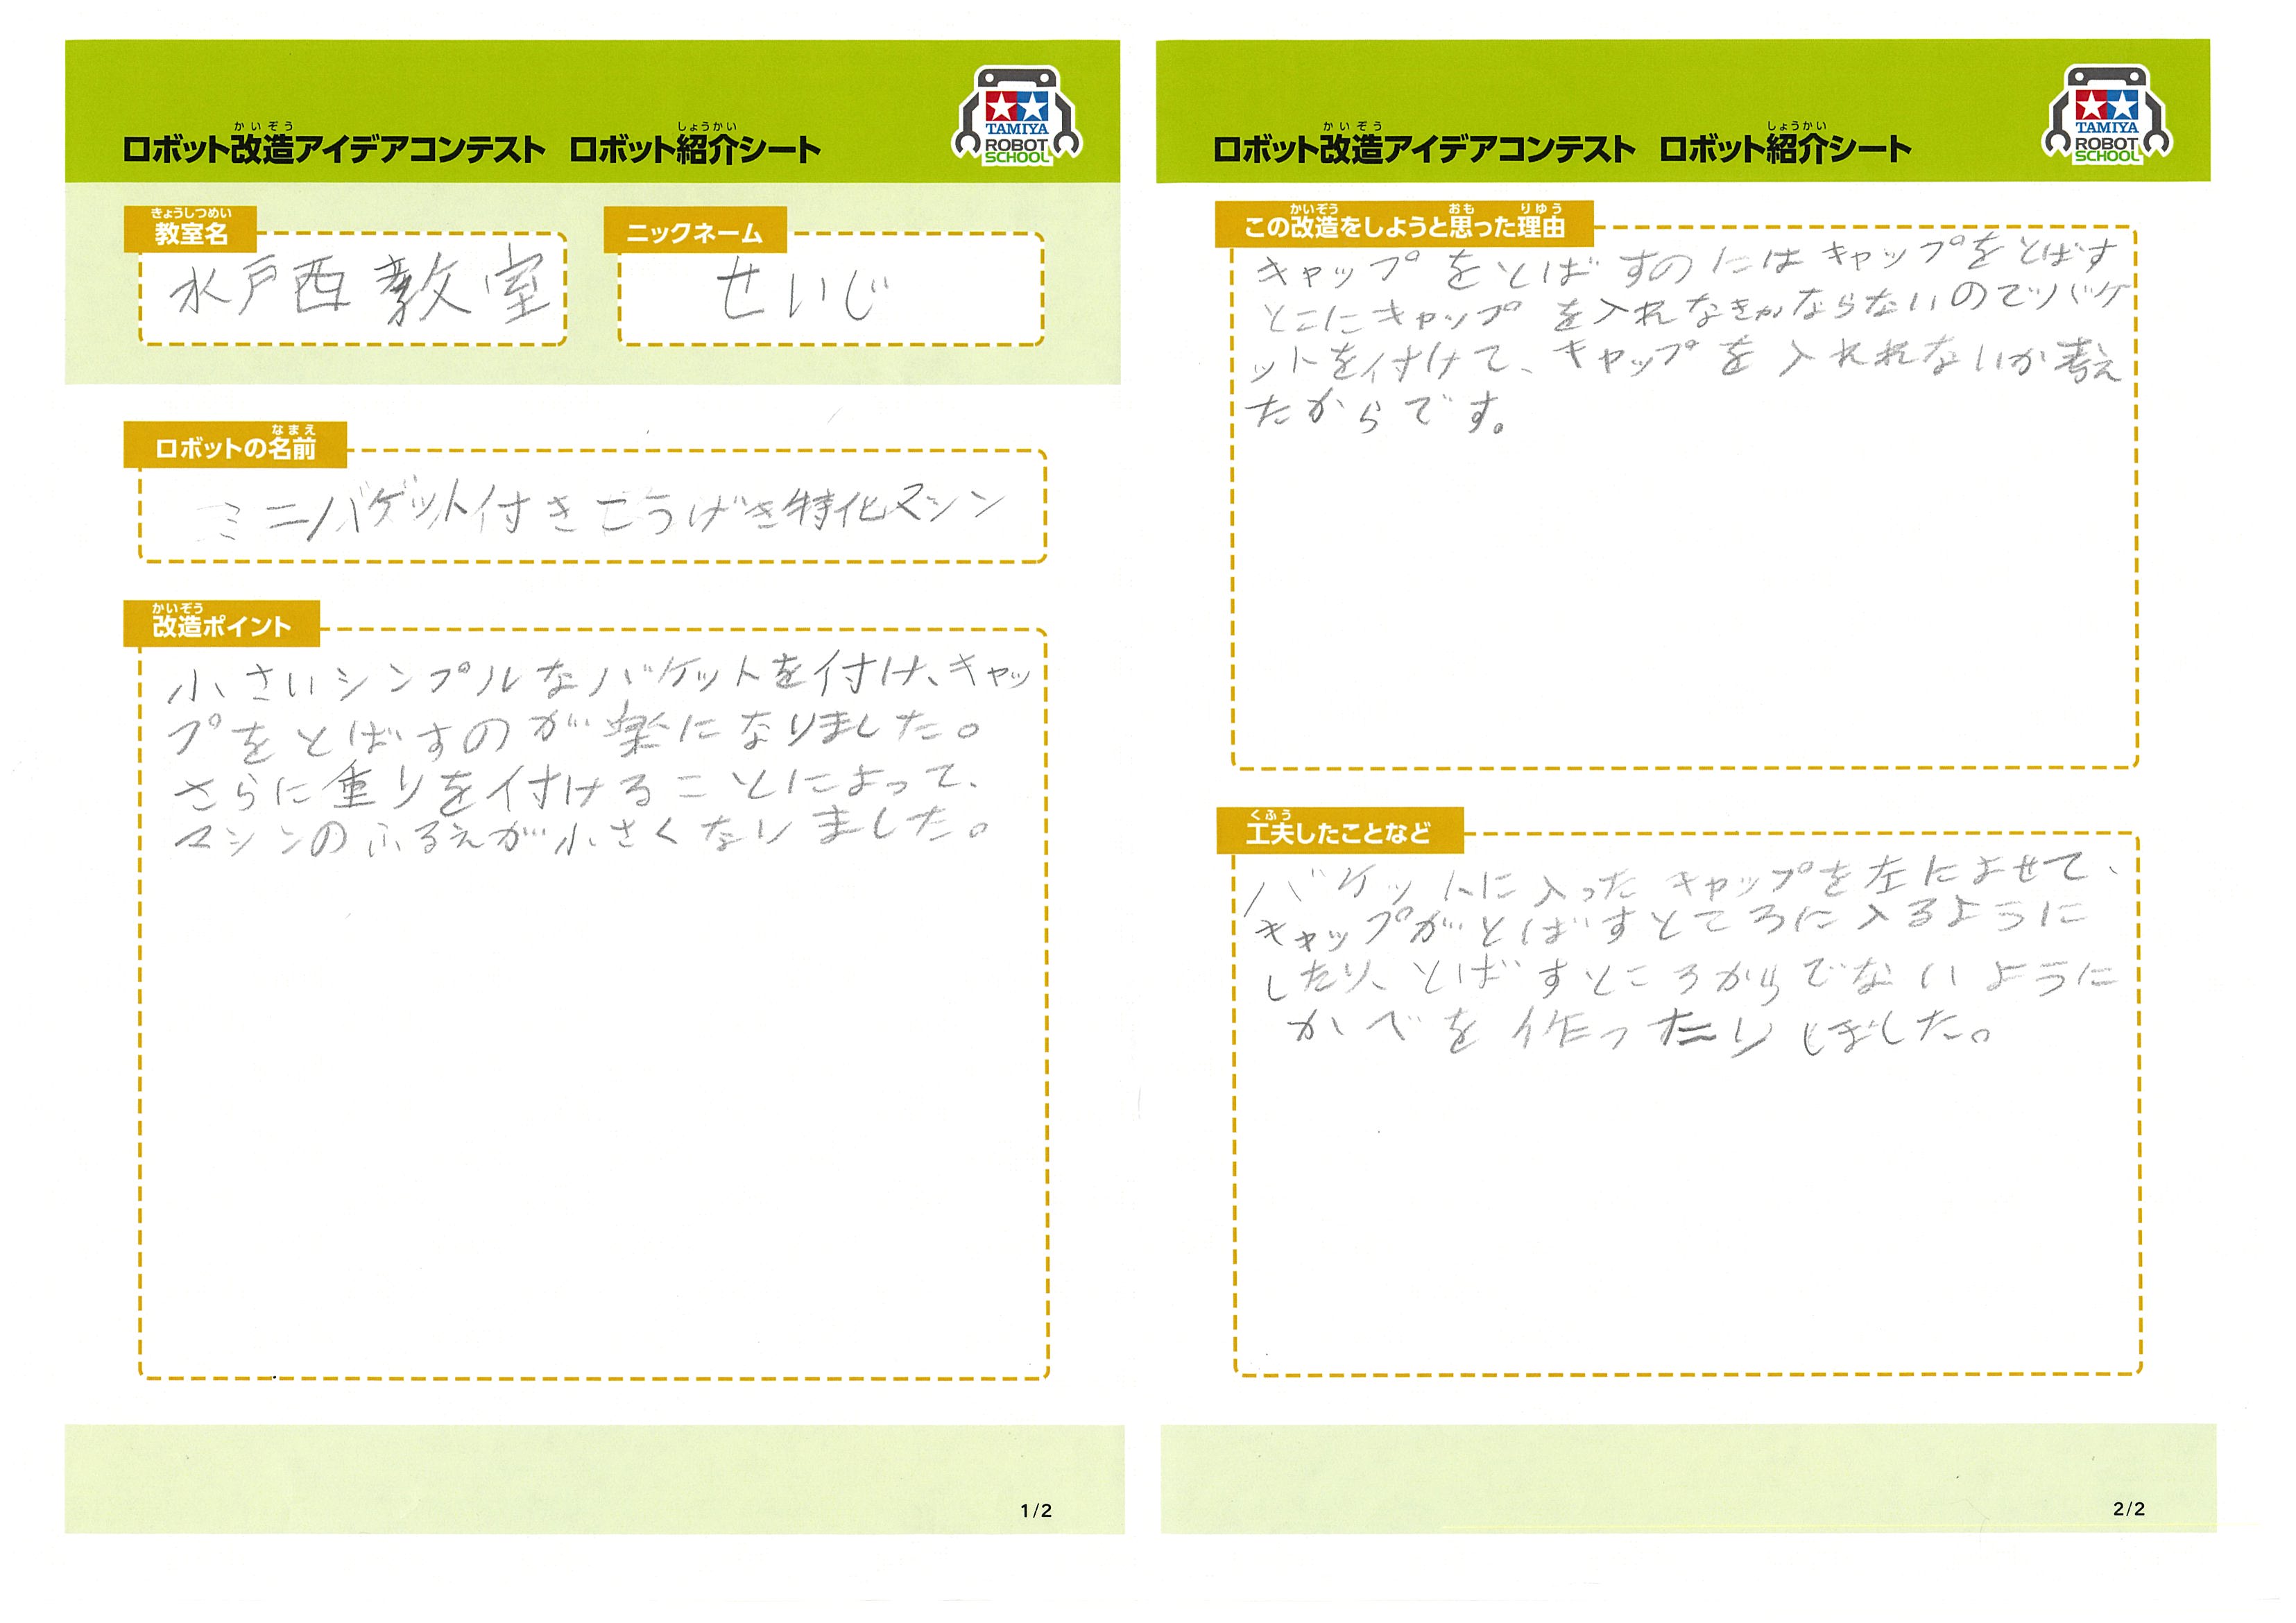 ロボット改造アイデアコンテスト ロボット紹介シート
かいぞう しょうかい
TAMIYA
ROBOT
SCHOOL
きょうしつめい
教室名
水戸西教室
ニックネーム
せいじ
なまえ
ロボットの名前
ミニバゲット付きこうげき特化マシン
かいぞう
改造ポイント
小さいシンプルなバケットを付け、キャッ
プをとばすのが楽になりました。
さらに重りを付けることによって、
マシンのふるえが小さくなりました。
1/2
かいぞう しょうかい
ロボット改造アイデアコンテスト ロボット紹介シート
TAMIYA
ROBOT
SCHOOL
かいぞう おも りゆう
この改造をしようと思った理由
キャップをとばすのにはキャップをとばす
とこにキャップを入れなきゃならないのでバケ
ットを付けて、キャップを入れれないか考え
たからです。
くふう
工夫したことなど
バケットに入ったキャップを左によせて、
キャップがとばすところに入るように
したり、とばすところからでないように
かべを作ったりしました。
2/2